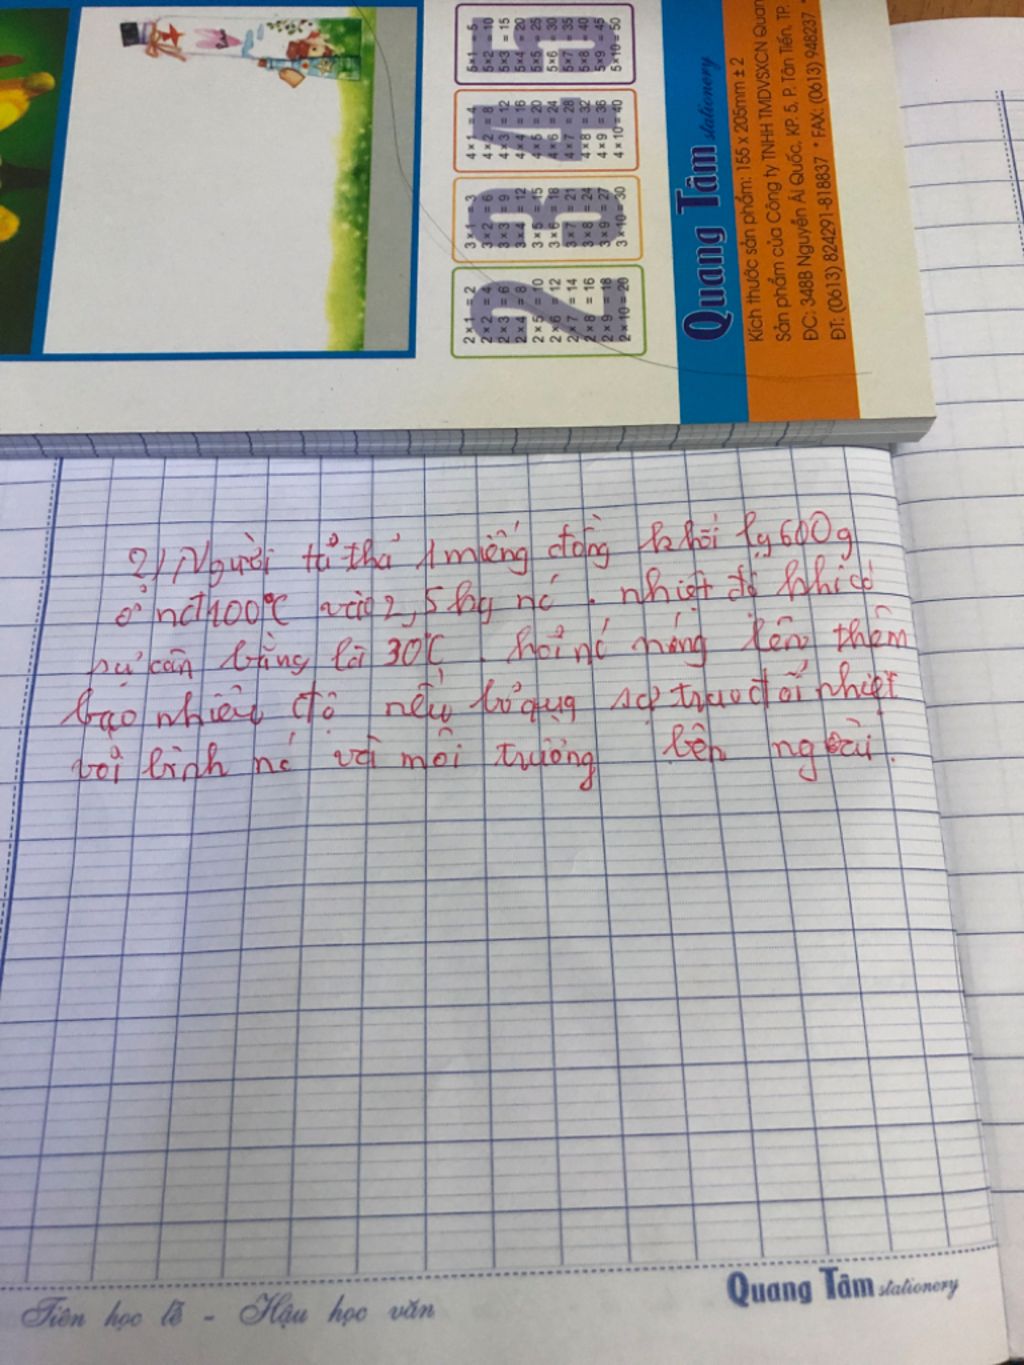 5×1 = 5
5×2 = 10
5×3 = 15
5×4 = 20
5×5 = 25
5×6 = 30
5×7 = 35
5×8 = 40
5×9 = 45
5×10 = 50
5
4×1 = 4
4×2 = 8
4×3 = 12
4×4 = 16
4×5 = 20
4×6 = 24
4×7 = 28
4×8 = 32
4×9 = 36
4×10 = 40
4
3×1 = 3
3×2 = 6
3×3 = 9
3×4 = 12
3×5 = 15
3×6 = 18
3×7 = 21
3×8 = 24
3×9 = 27
3×10 = 30
3
2×1 = 2
2×2 = 4
2×3 = 6
2×4 = 8
2×5 = 10
2×6 = 12
2×7 = 14
2×8 = 16
2×9 = 18
2×10 = 20
2
Quang Tâm stationery
Kích thước sản phẩm: 155 x 205mm ± 2
Sản phẩm của Công ty TNHH TMDVSXCN Quan
ĐC: 348B Nguyễn Ái Quốc, KP. 5, P. Tân Tiến, TP.
ĐT: (0613) 824291-818837 * FAX: (0613) 948237 *
2) Người ta thả 1 miếng đồng khối lg 600g
ở nđ 100°C vào 2,5kg nc . nhiệt độ khi có
sự cân bằng là 30°C . hỏi nc nóng lên thêm
bao nhiêu độ nếu bỏ qua sự trao đổi nhiệt
với bình nc và môi trường bên ngoài.
Tiên học lễ - Hậu học văn
Quang Tâm stationery